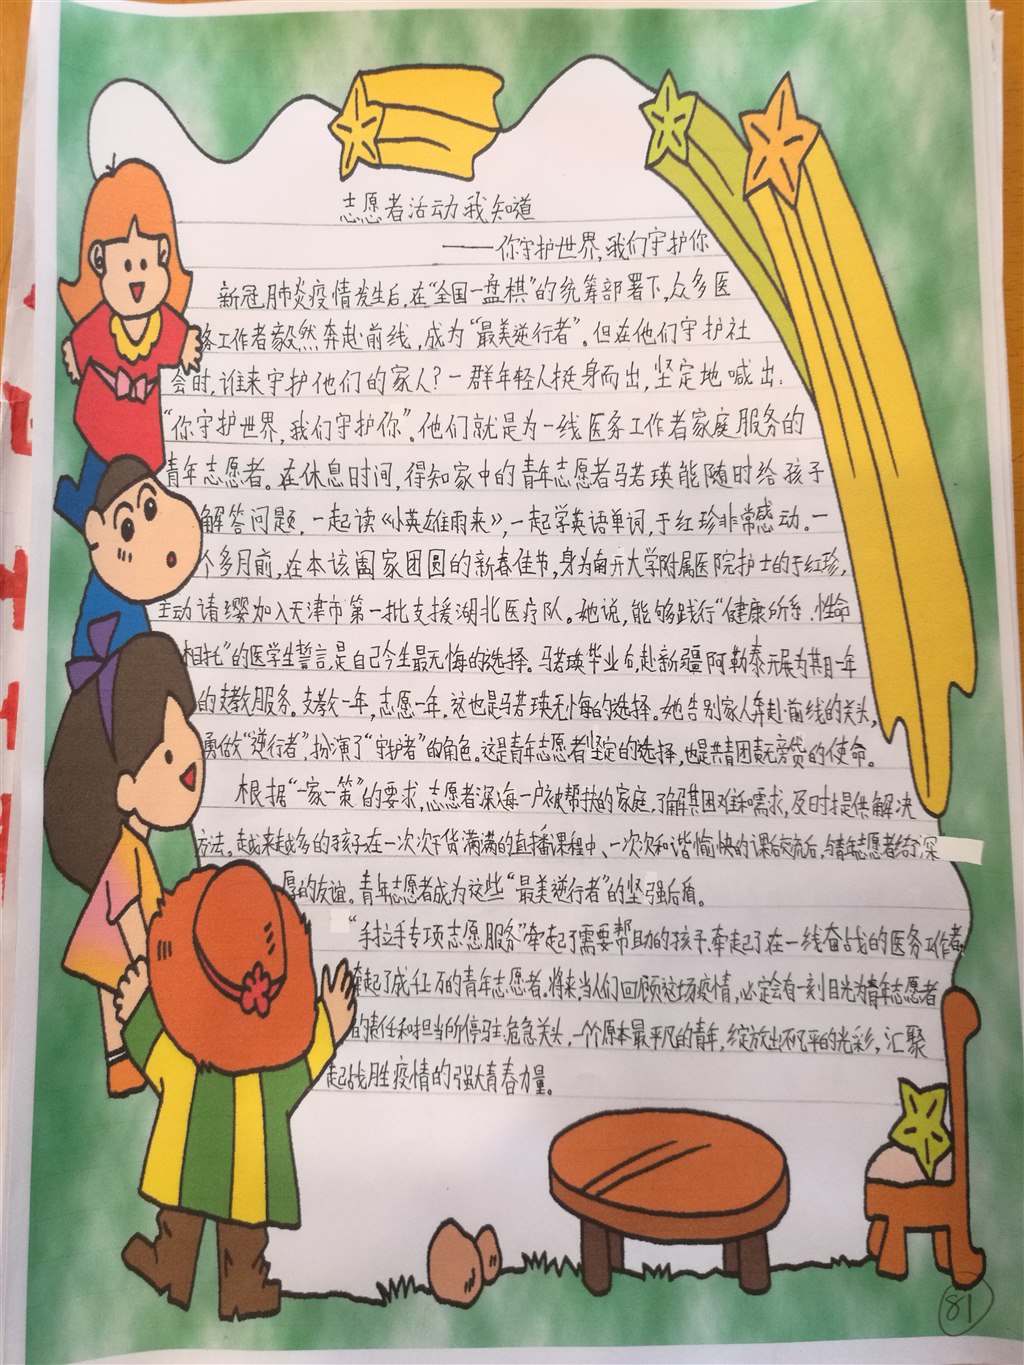 志愿者活动我知道
——你守护世界,我们守护你
新冠肺炎疫情发生后,在“全国一盘棋”的统筹部署下,众多医
务工作者毅然奔赴前线,成为“最美逆行者”。但在他们守护社
会时,谁来守护他们的家人?一群年轻人挺身而出,坚定地喊出:
“你守护世界,我们守护你”。他们就是为一线医务工作者家庭服务的
青年志愿者。在休息时间,得知家中的青年志愿者马若瑛能随时给孩子
解答问题,一起读《小英雄雨来》,一起学英语单词,于红珍非常感动。一
个多月前,在本该阖家团圆的新春佳节,身为南开大学附属医院护士的于红珍,
主动请缨加入天津市第一批支援湖北医疗队。她说,能够践行“健康所系、性命
相托”的医学生誓言,是自己今生最无悔的选择。马若瑛毕业后,赴新疆阿勒泰开展为期一年
的支教服务。支教一年,志愿一年,这也是马若瑛无悔的选择。她告别家人奔赴前线的关头,
勇做“逆行者”,扮演了“守护者”的角色。这是青年志愿者坚定的选择,也是共青团责无旁贷的使命。
根据“一家一策”的要求,志愿者深每一户被帮扶的家庭,了解其困难和需求,及时提供解决
方法。越来越多的孩子在一次次干货满满的直播课程中、一次次和谐愉快的课后交流后,与青年志愿者结深
厚的友谊。青年志愿者成为这些“最美逆行者”的坚强后盾。
“手拉手专项志愿服务”牵起了需要帮助的孩子,牵起了在一线奋战的医务工作者,
牵起了成千上万的青年志愿者。将来,当人们回顾这场疫情,必定会有一刻目光为青年志愿者
的责任和担当所停驻。危急关头,一个个原本最平凡的青年,绽放出不凡平的光彩,汇聚
起战胜疫情的强大青春力量。
81